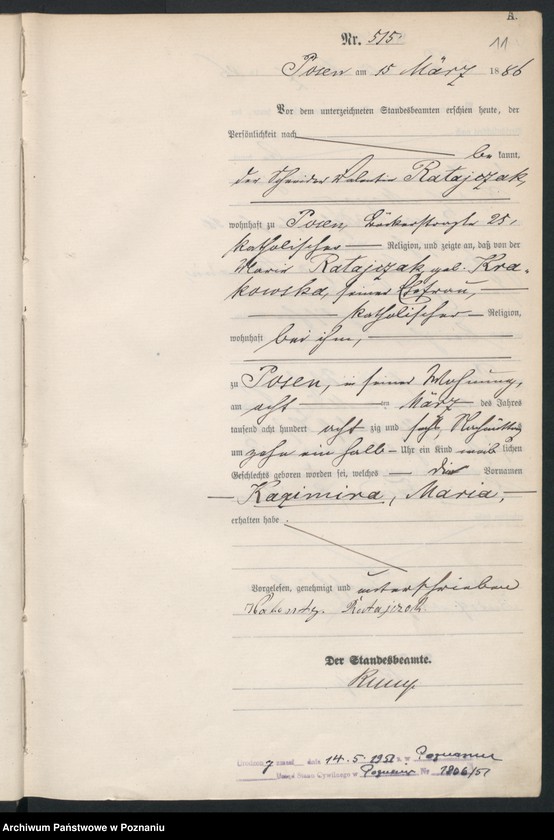 A.
11
Nr. 515.
Posen am 15 März 1886
Vor dem unterzeichneten Standesbeamten erschien heute, der
Persönlichkeit nach
be kannt,
der Schneider Valentin Ratajczak,
wohnhaft zu Posen, Bäckerstraße 25,
katholischer Religion, und zeigte an, daß von der
Marie Ratajczak geb. Kra-
kowska, seiner Ehefrau,
katholischer Religion,
wohnhaft bei ihm,
zu Posen, in seiner Wohnung,
am acht ten März des Jahres
tausend acht hundert acht zig und sechs, Nachmittags
um zehn ein halb Uhr ein Kind weib lichen
Geschlechts geboren worden sei, welches die Vornamen
Kazimira, Maria,
erhalten habe.
Vorgelesen, genehmigt und unterschrieben
Walenty Ratajczak
Der Standesbeamte.
dnia 14.5.1951 r. w Poznaniu
Urząd Stanu Cywilnego w Poznaniu Nr 1806/51
Archiwum Państwowe w Poznaniu